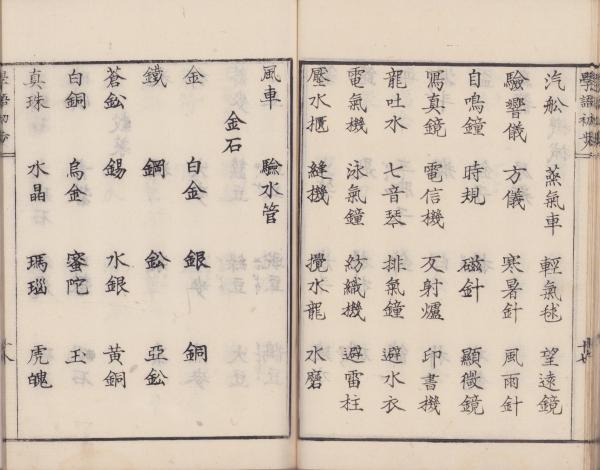 汽舩 蒸氣車 輕氣毬 望遠鏡
驗響儀 方儀 寒暑針 風雨針
自鳴鐘 時規 磁針 顯微鏡
寫真鏡 電信機 反射爐 印書機
龍吐水 七音琴 排氣鐘 避水衣
電氣機 泳氣鐘 紡織機 避雷柱
壓水櫃 縫機 攪水龍 水磨
風車 驗水管
金石
金 白金 銀 銅
鐵 鋼 鈆 亞鈆
蒼鈆 錫 水銀 黃銅
白銅 烏金 蜜陀 玉
真珠 水晶 瑪瑙 虎魄